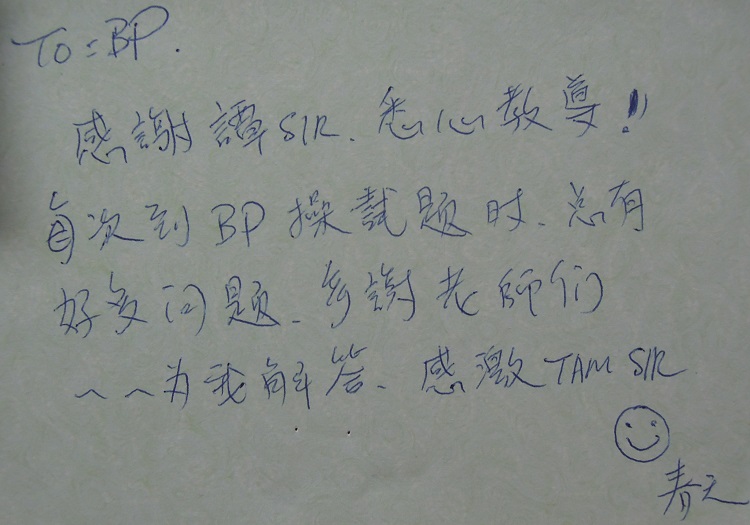 To: BP.
感謝譚SIR、悉心教導!!
每次到BP操試题时、总有
好多问题、多謝老師们
一一为我解答、感激TAM SIR
春天